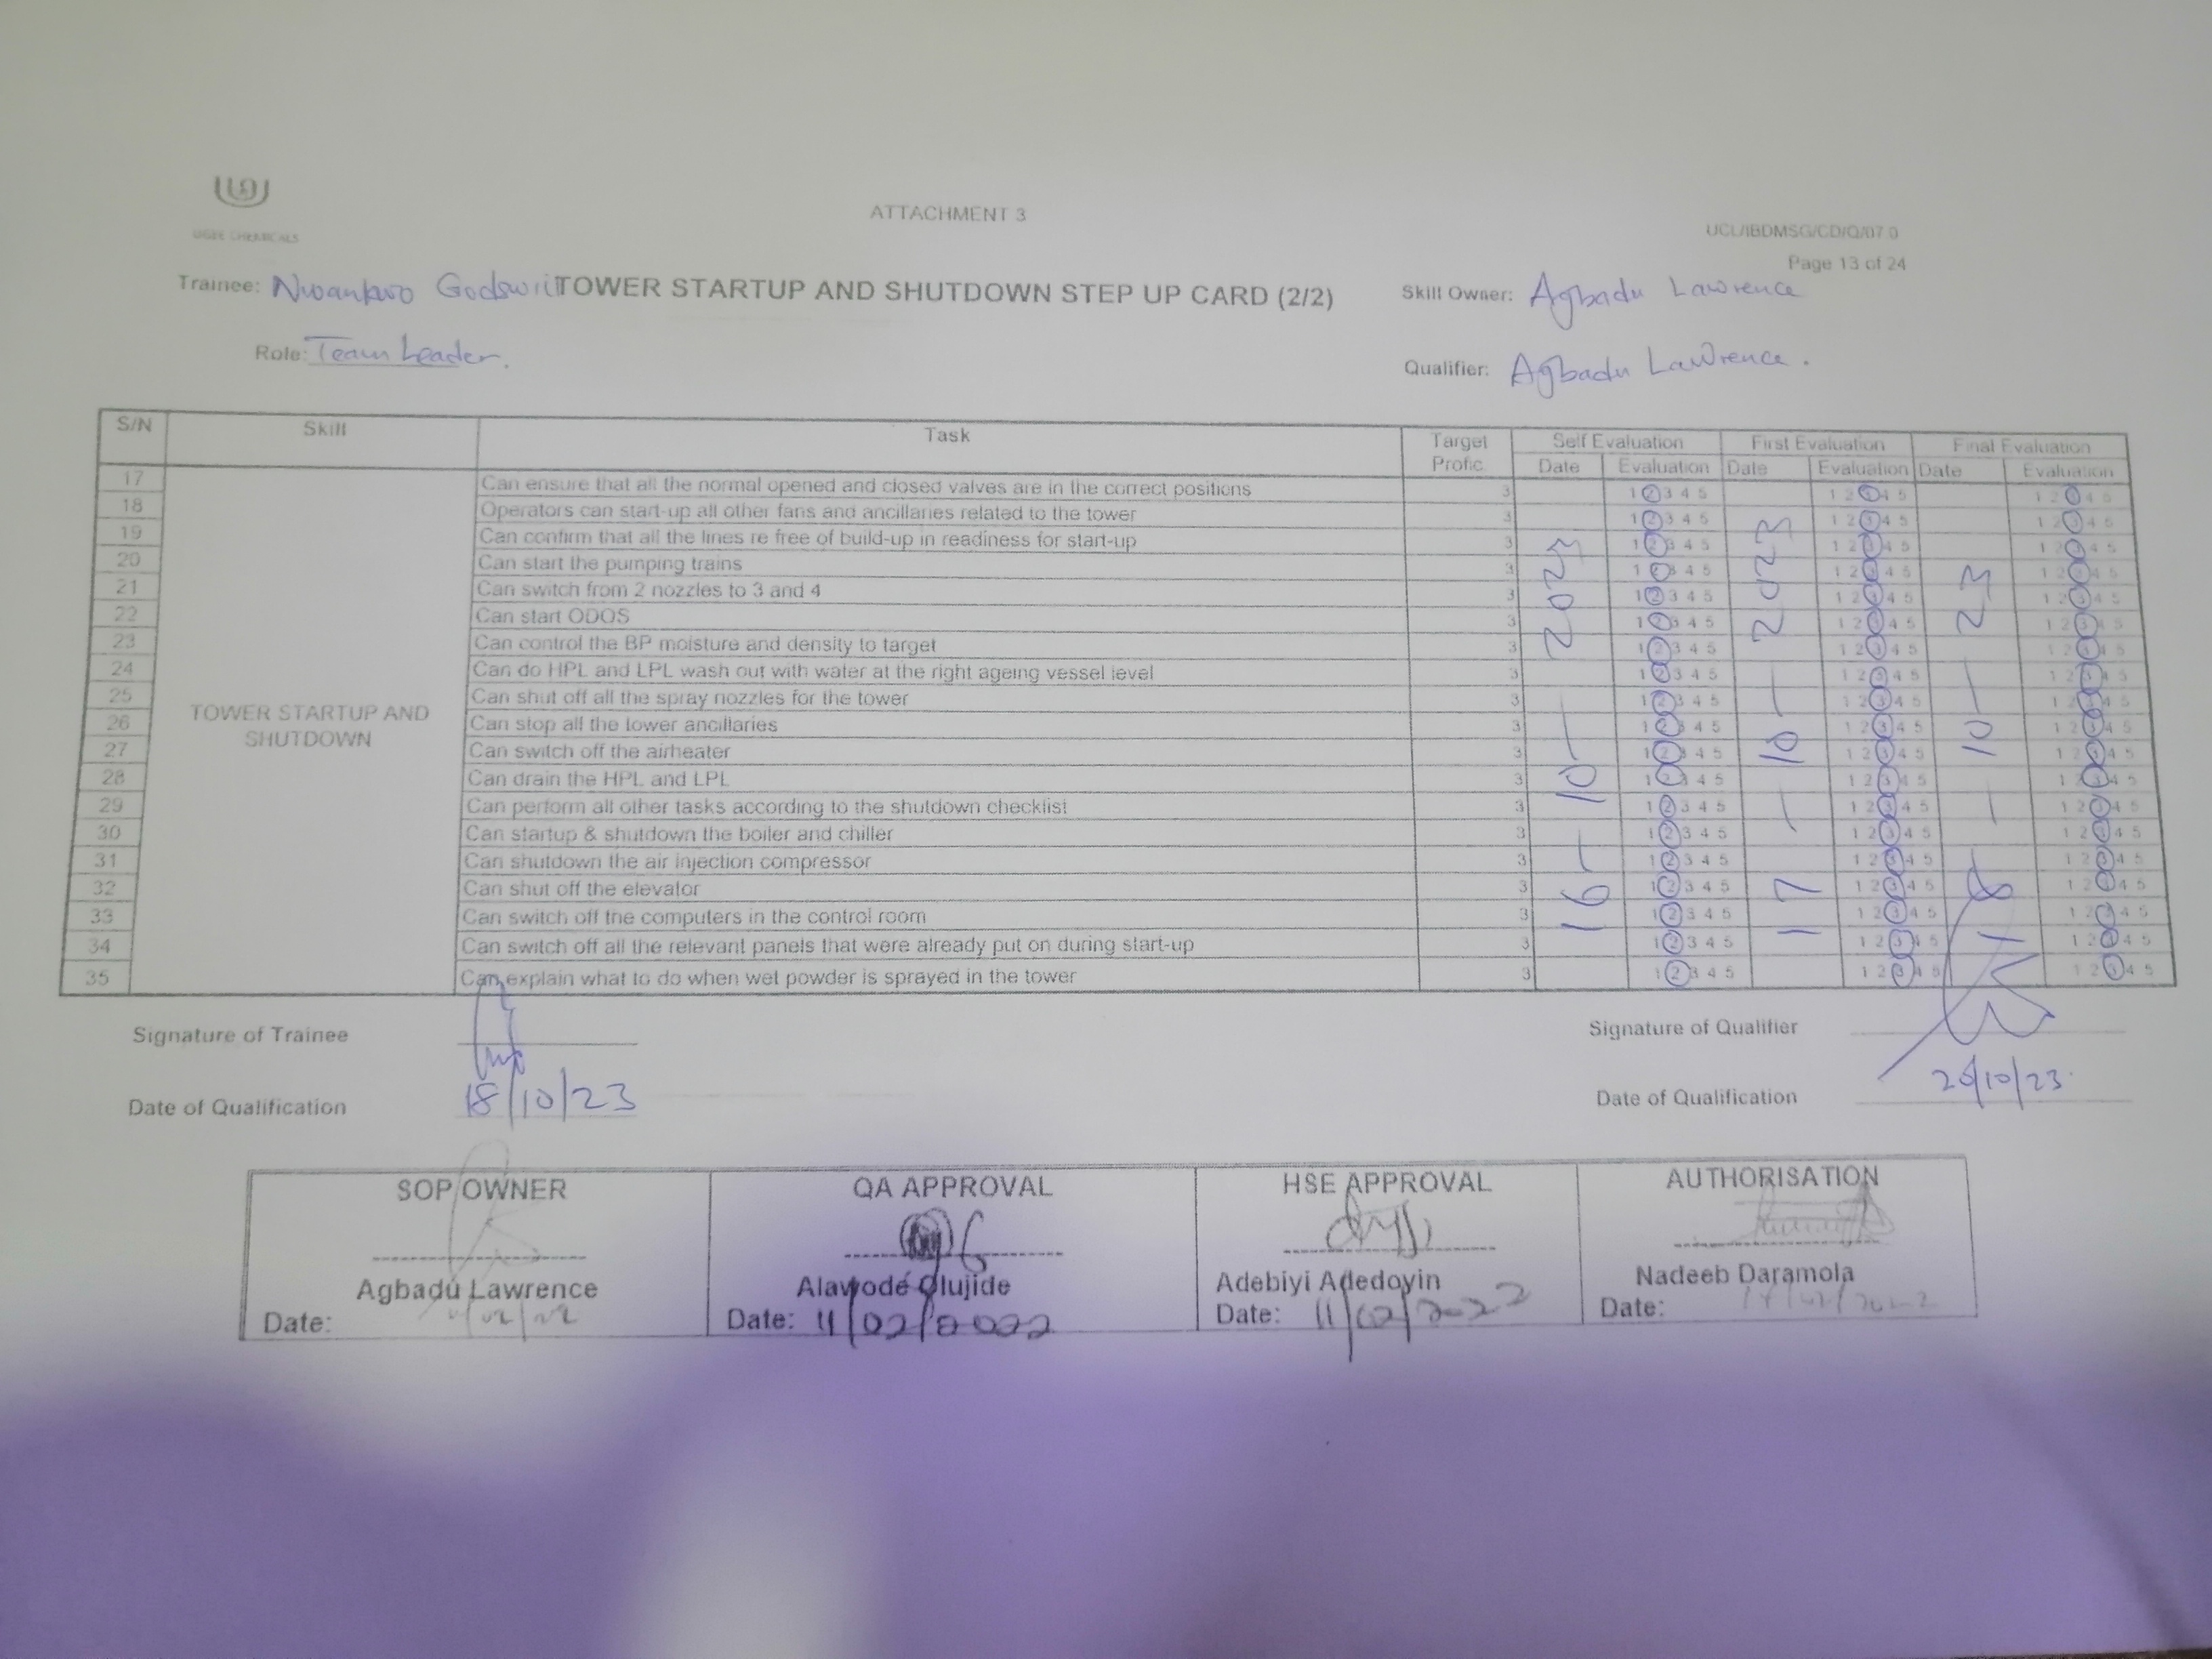 ATTACHMENT 3
UCL/IBDMSG/CD/Q/07.0
Page 13 of 24
Trainee: Nwankwo Godswill TOWER STARTUP AND SHUTDOWN STEP UP CARD (2/2) Skill Owner: Agbadu Lawrence
Role: Team Leader. Qualifier: Agbadu Lawrence.
S/N Skill Task Target Profic. Self Evaluation First Evaluation Final Evaluation
Date Evaluation Date Evaluation Date Evaluation
TOWER STARTUP AND SHUTDOWN
17 Can ensure that all the normal opened and closed valves are in the correct positions 3 1 2 3 4 5 1 2 3 4 5 1 2 3 4 5
18 Operators can start-up all other fans and ancillaries related to the tower 3 1 2 3 4 5 1 2 3 4 5 1 2 3 4 5
19 Can confirm that all the lines re free of build-up in readiness for start-up 3 1 2 3 4 5 1 2 3 4 5 1 2 3 4 5
20 Can start the pumping trains 3 1 2 3 4 5 1 2 3 4 5 1 2 3 4 5
21 Can switch from 2 nozzles to 3 and 4 3 1 2 3 4 5 1 2 3 4 5 1 2 3 4 5
22 Can start ODOS 3 1 2 3 4 5 1 2 3 4 5 1 2 3 4 5
23 Can control the BP moisture and density to target 3 1 2 3 4 5 1 2 3 4 5 1 2 3 4 5
24 Can do HPL and LPL wash out with water at the right ageing vessel level 3 1 2 3 4 5 1 2 3 4 5 1 2 3 4 5
25 Can shut off all the spray nozzles for the tower 3 1 2 3 4 5 1 2 3 4 5 1 2 3 4 5
26 Can stop all the tower ancillaries 3 1 2 3 4 5 1 2 3 4 5 1 2 3 4 5
27 Can switch off the airheater 3 1 2 3 4 5 1 2 3 4 5 1 2 3 4 5
28 Can drain the HPL and LPL 3 1 2 3 4 5 1 2 3 4 5 1 2 3 4 5
29 Can perform all other tasks according to the shutdown checklist 3 1 2 3 4 5 1 2 3 4 5 1 2 3 4 5
30 Can startup & shutdown the boiler and chiller 3 1 2 3 4 5 1 2 3 4 5 1 2 3 4 5
31 Can shutdown the air injection compressor 3 1 2 3 4 5 1 2 3 4 5 1 2 3 4 5
32 Can shut off the elevator 3 1 2 3 4 5 1 2 3 4 5 1 2 3 4 5
33 Can switch off the computers in the control room 3 1 2 3 4 5 1 2 3 4 5 1 2 3 4 5
34 Can switch off all the relevant panels that were already put on during start-up 3 1 2 3 4 5 1 2 3 4 5 1 2 3 4 5
35 Can explain what to do when wet powder is sprayed in the tower 3 1 2 3 4 5 1 2 3 4 5 1 2 3 4 5
16/10/2023
17/10/2023
18/10/23
Signature of Trainee Signature of Qualifier
Date of Qualification 18/10/23 Date of Qualification 20/10/23.
SOP OWNER QA APPROVAL HSE APPROVAL AUTHORISATION
Agbadu Lawrence Alawode Olujide Adebiyi Adedoyin Nadeeb Daramola
Date: Date: 11/02/2022 Date: 11/02/2022 Date: